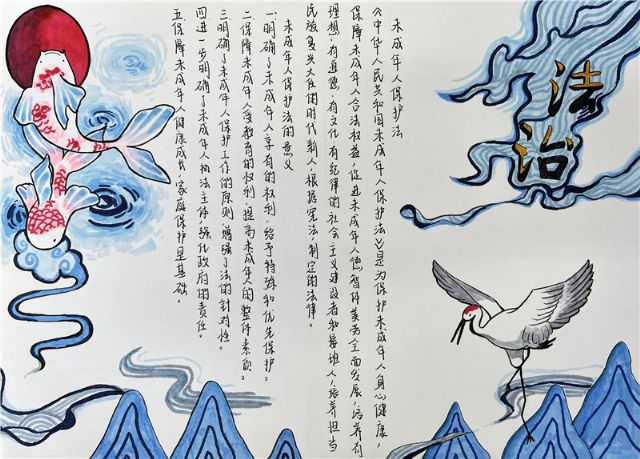 法治
未成年人保护法
《中华人民共和国未成年人保护法》是为保护未成年人身心健康，
保障未成年人合法权益，促进未成年人德智体美劳全面发展，培养有
理想、有道德、有文化、有纪律的社会主义建设者和接班人，培养担当
民族复兴大任的时代新人，根据宪法，制定的法律。
未成年人保护法的意义
一.明确了未成年人享有的权利，给予特殊和优先保护。
二.保障未成年人受教育的权利，提高未成年人的整体素质。
三.明确了未成年人保护工作的原则，增强了法的针对性。
四.进一步明确了未成年人执法主体，强化政府的责任。
五.保障未成年人健康成长，家庭保护是基础。